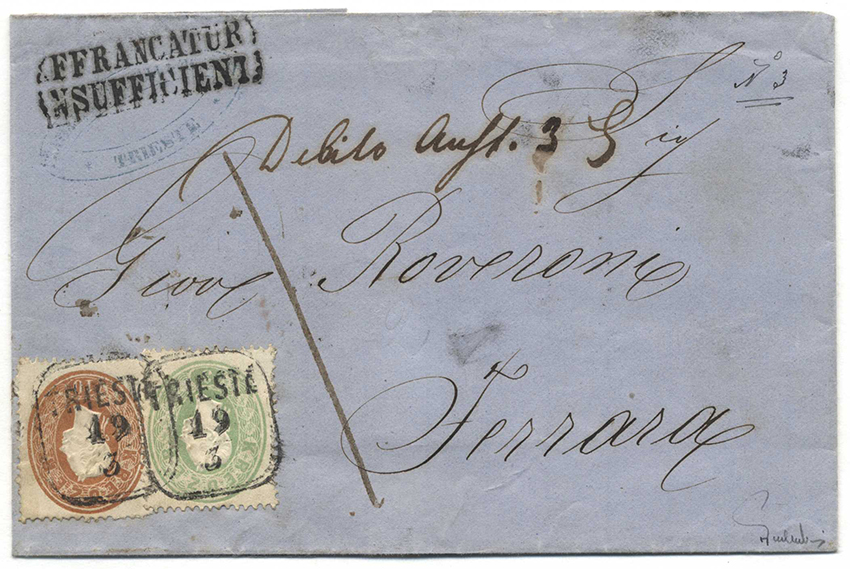 FFRANCATUR
NSUFFICIENT
TRIESTE
No 3
Debito Aust. 3
Sig
Giove Roveroni
Ferrara
TRIESTE
19
3
TRIESTE
19
3